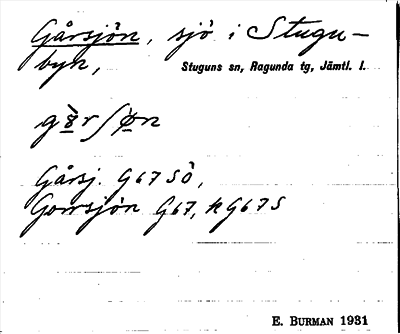 Gårsjön, sjö i Stugu-
byn,
Stuguns sn, Ragunda tg, Jämtl. l.
Gårsj. G67SÖ,
Gorrsjön G67, kG67S
E. BURMAN 1931